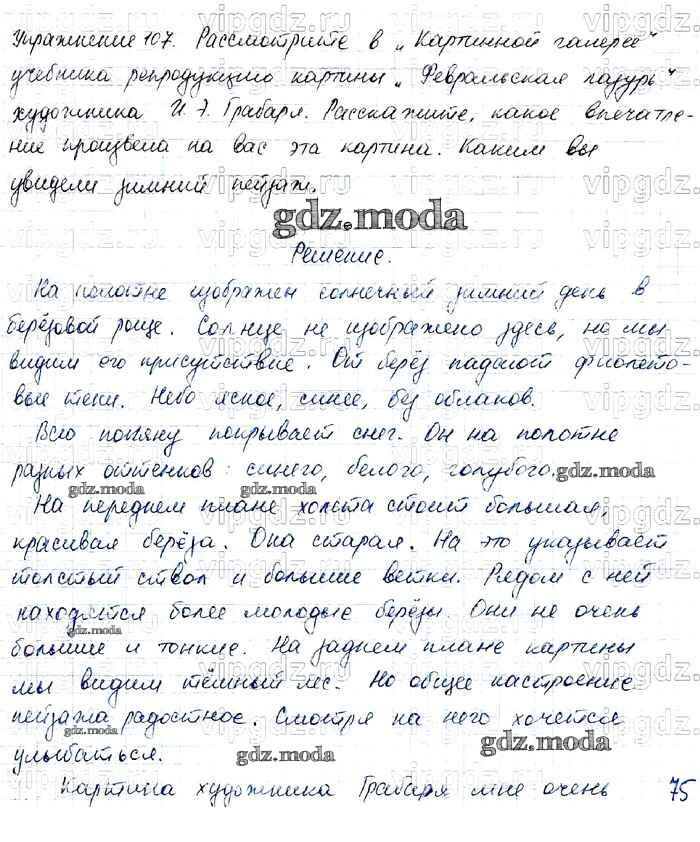 Упражнение 107. Рассмотрите в „Картинной галерее“
учебника репродукцию картины „Февральская лазурь“
художника И. Э. Грабаря. Расскажите, какое впечатле-
ние произвела на вас эта картина. Каким вы
увидели зимний пейзаж.
gdz.moda
Решение.
На полотне изображен солнечный зимний день в
берёзовой роще. Солнце не изображено здесь, но мы
видим его присутствие. От берёз падают фиолето-
вые тени. Небо ясное, синее, без облаков.
Всю поляну покрывает снег. Он на полотне
разных оттенков: синего, белого, голубого.
gdz.moda gdz.moda
На переднем плане холста стоит большая,
красивая берёза. Она старая. На это указывает
толстый ствол и большие ветки. Рядом с ней
находятся более молодые берёзы. Они не очень
gdz.moda
большие и тонкие. На заднем плане картины
мы видим тёмный лес. Но общее настроение
пейзажа радостное. Смотря на него хочется
улыбаться.
gdz.moda gdz.moda
Картина художника Грабаря мне очень 75